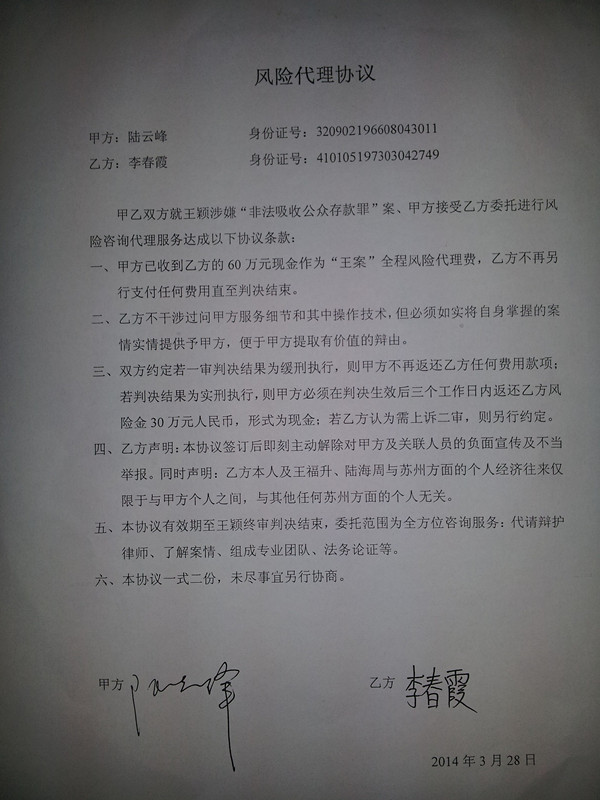 风险代理协议
甲方：陆云峰 身份证号：320902196608043011
乙方：李春霞 身份证号：410105197303042749
甲乙双方就王颖涉嫌“非法吸收公众存款罪”案、甲方接受乙方委托进行风
险咨询代理服务达成以下协议条款：
一、甲方已收到乙方的 60 万元现金作为“王案”全程风险代理费，乙方不再另
行支付任何费用直至判决结束。
二、乙方不干涉过问甲方服务细节和其中操作技术，但必须如实将自身掌握的案
情实情提供予甲方，便于甲方提取有价值的辩由。
三、双方约定若一审判决结果为缓刑执行，则甲方不再返还乙方任何费用款项；
若判决结果为实刑执行，则甲方必须在判决生效后三个工作日内返还乙方风
险金 30 万元人民币，形式为现金；若乙方认为需上诉二审，则另行约定。
四、乙方声明：本协议签订后即刻主动解除对甲方及关联人员的负面宣传及不当
举报。同时声明：乙方本人及王福升、陆海周与苏州方面的个人经济往来仅
限于与甲方个人之间，与其他任何苏州方面的个人无关。
五、本协议有效期至王颖终审判决结束，委托范围为全方位咨询服务：代请辩护
律师、了解案情、组成专业团队、法务论证等。
六、本协议一式二份，未尽事宜另行协商。
甲方 乙方 李春霞
2014 年 3 月 28 日